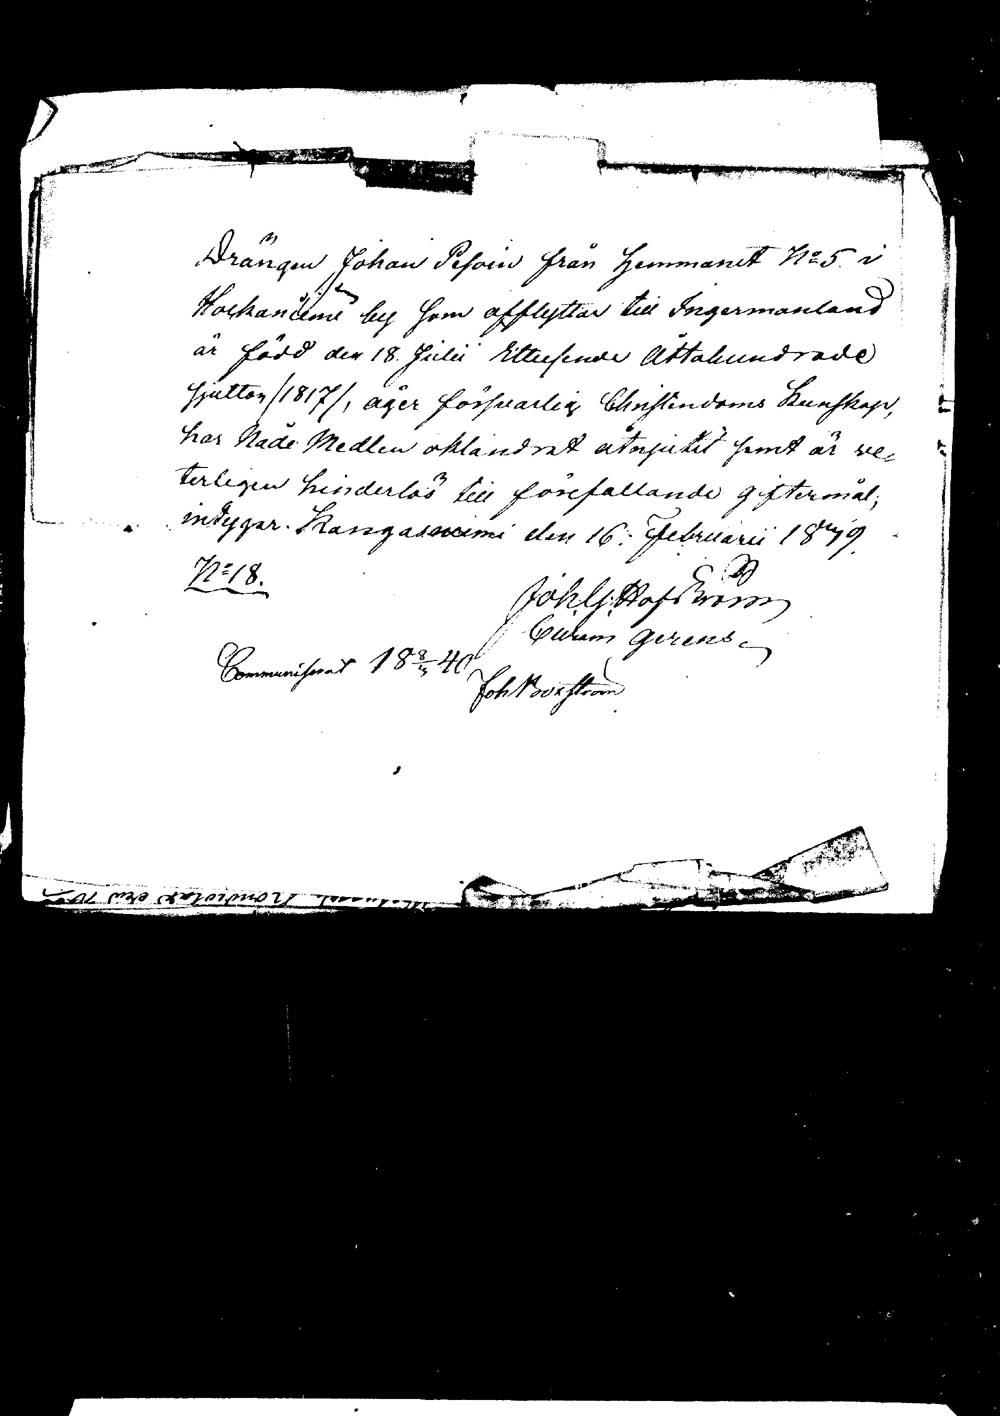 Drängen Johan Pesoin från Hemmanet N:o 5. i
by som afflyttar till Ingermanland
är född den 18. Julii Ettusende Åttahundrade
sjutton /1817/, äger försvarlig Christendoms Kunskap,
har Nåde Medlen oklandrat åtnjutit samt är ve-
terligen hinderlös till förefallande giftermål,
intygar. Kangasniemi den 16. Februarii 18
N:o 18.
Joh. G. Hofström
Curam gerens
Communiserat 18 40
Joh